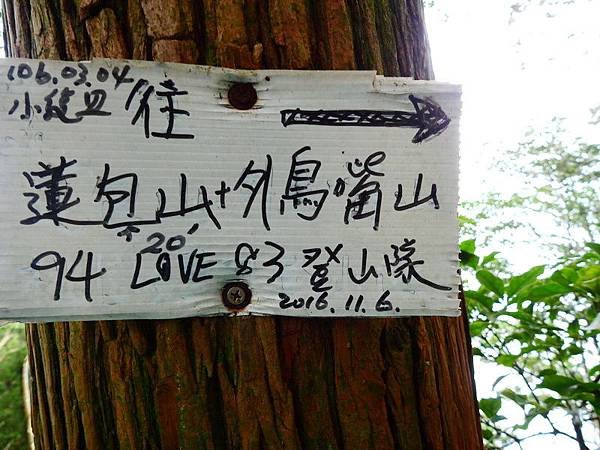 106.03.04
小綾皿 往 →
蓮包山+外鳥嘴山
↑20'
94 LOVE 83 登山隊
2016.11.6.